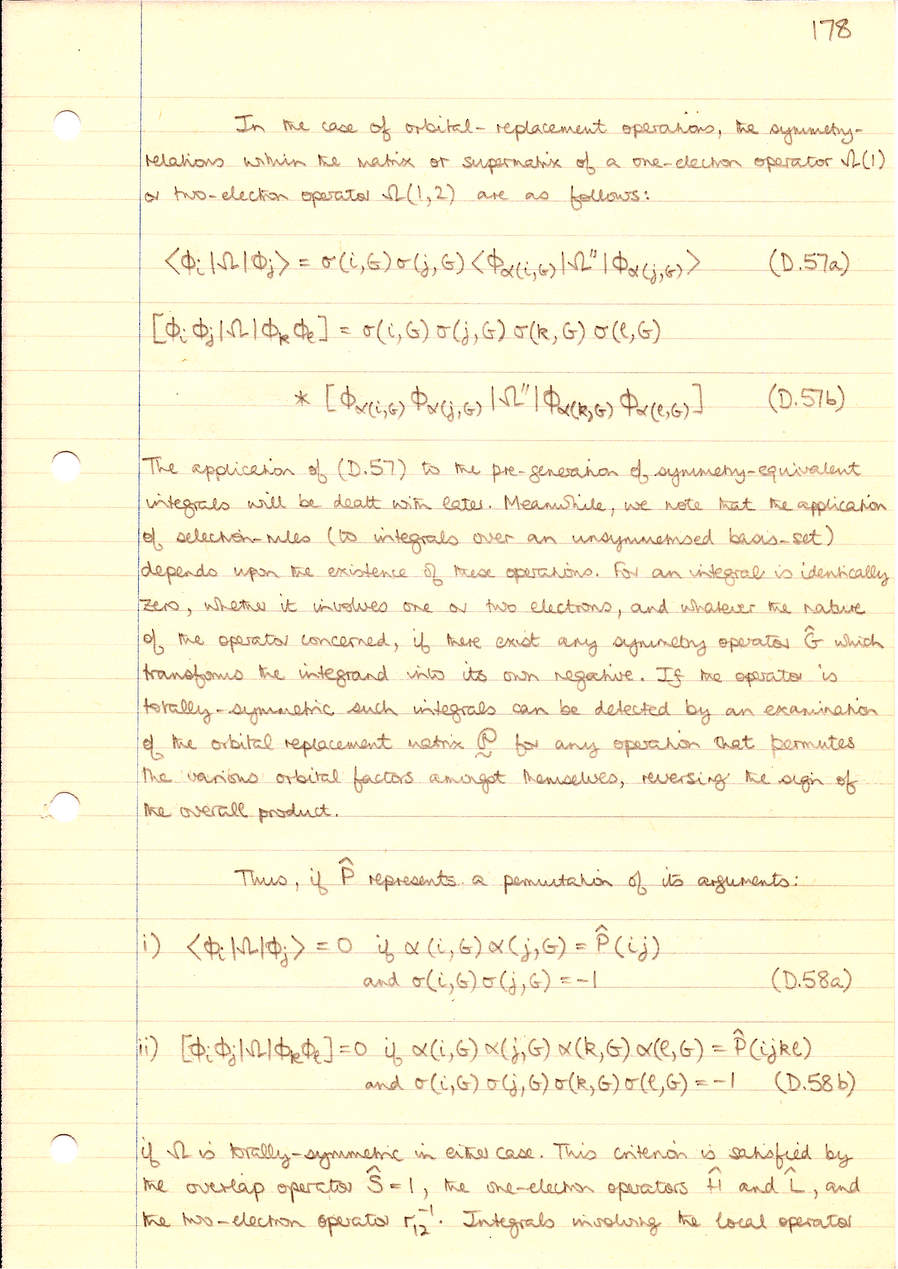 178
In the case of orbital-replacement operations, the symmetry-
relations within the matrix or supermatrix of a one-electron operator Ω(1)
or two-electron operator Ω(1,2) are as follows:
<ϕi|Ω|ϕj> = σ(i,G)σ(j,G)<ϕα(i,G)|Ω"|ϕα(j,G)> (D.57a)
[ϕiϕj|Ω|ϕkϕℓ] = σ(i,G)σ(j,G)σ(k,G)σ(ℓ,G)
* [ϕα(i,G) ϕα(j,G)|Ω"|ϕα(k,G) ϕα(ℓ,G)] (D.57b)
The application of (D.57) to the pre-generation of symmetry-equivalent
integrals will be dealt with later. Meanwhile, we note that the application
of selection-rules (to integrals over an unsymmetrised basis-set)
depends upon the existence of these operations. For an integral is identically
zero, whether it involves one or two electrons, and whatever the nature
of the operator concerned, if there exist any symmetry operator Ĝ which
transforms the integrand into its own negative. If the operator is
totally-symmetric such integrals can be detected by an examination
of the orbital replacement matrix P for any operation that permutes
the various orbital factors amongst themselves, reversing the sign of
the overall product.
Thus, if P̂ represents a permutation of its arguments:
i) <ϕi|Ω|ϕj> = 0 if α(i,G)α(j,G) = P̂(ij)
and σ(i,G)σ(j,G) = -1 (D.58a)
ii) [ϕiϕj|Ω|ϕkϕℓ] = 0 if α(i,G)α(j,G)α(k,G)α(ℓ,G) = P̂(ijkℓ)
and σ(i,G)σ(j,G)σ(k,G)σ(ℓ,G) = -1 (D.58b)
if Ω is totally-symmetric in either case. This criterion is satisfied by
the overlap operator Ŝ = 1, the one-electron operators Ĥ and L̂, and
the two-electron operator r₁₂⁻¹. Integrals involving the local operator